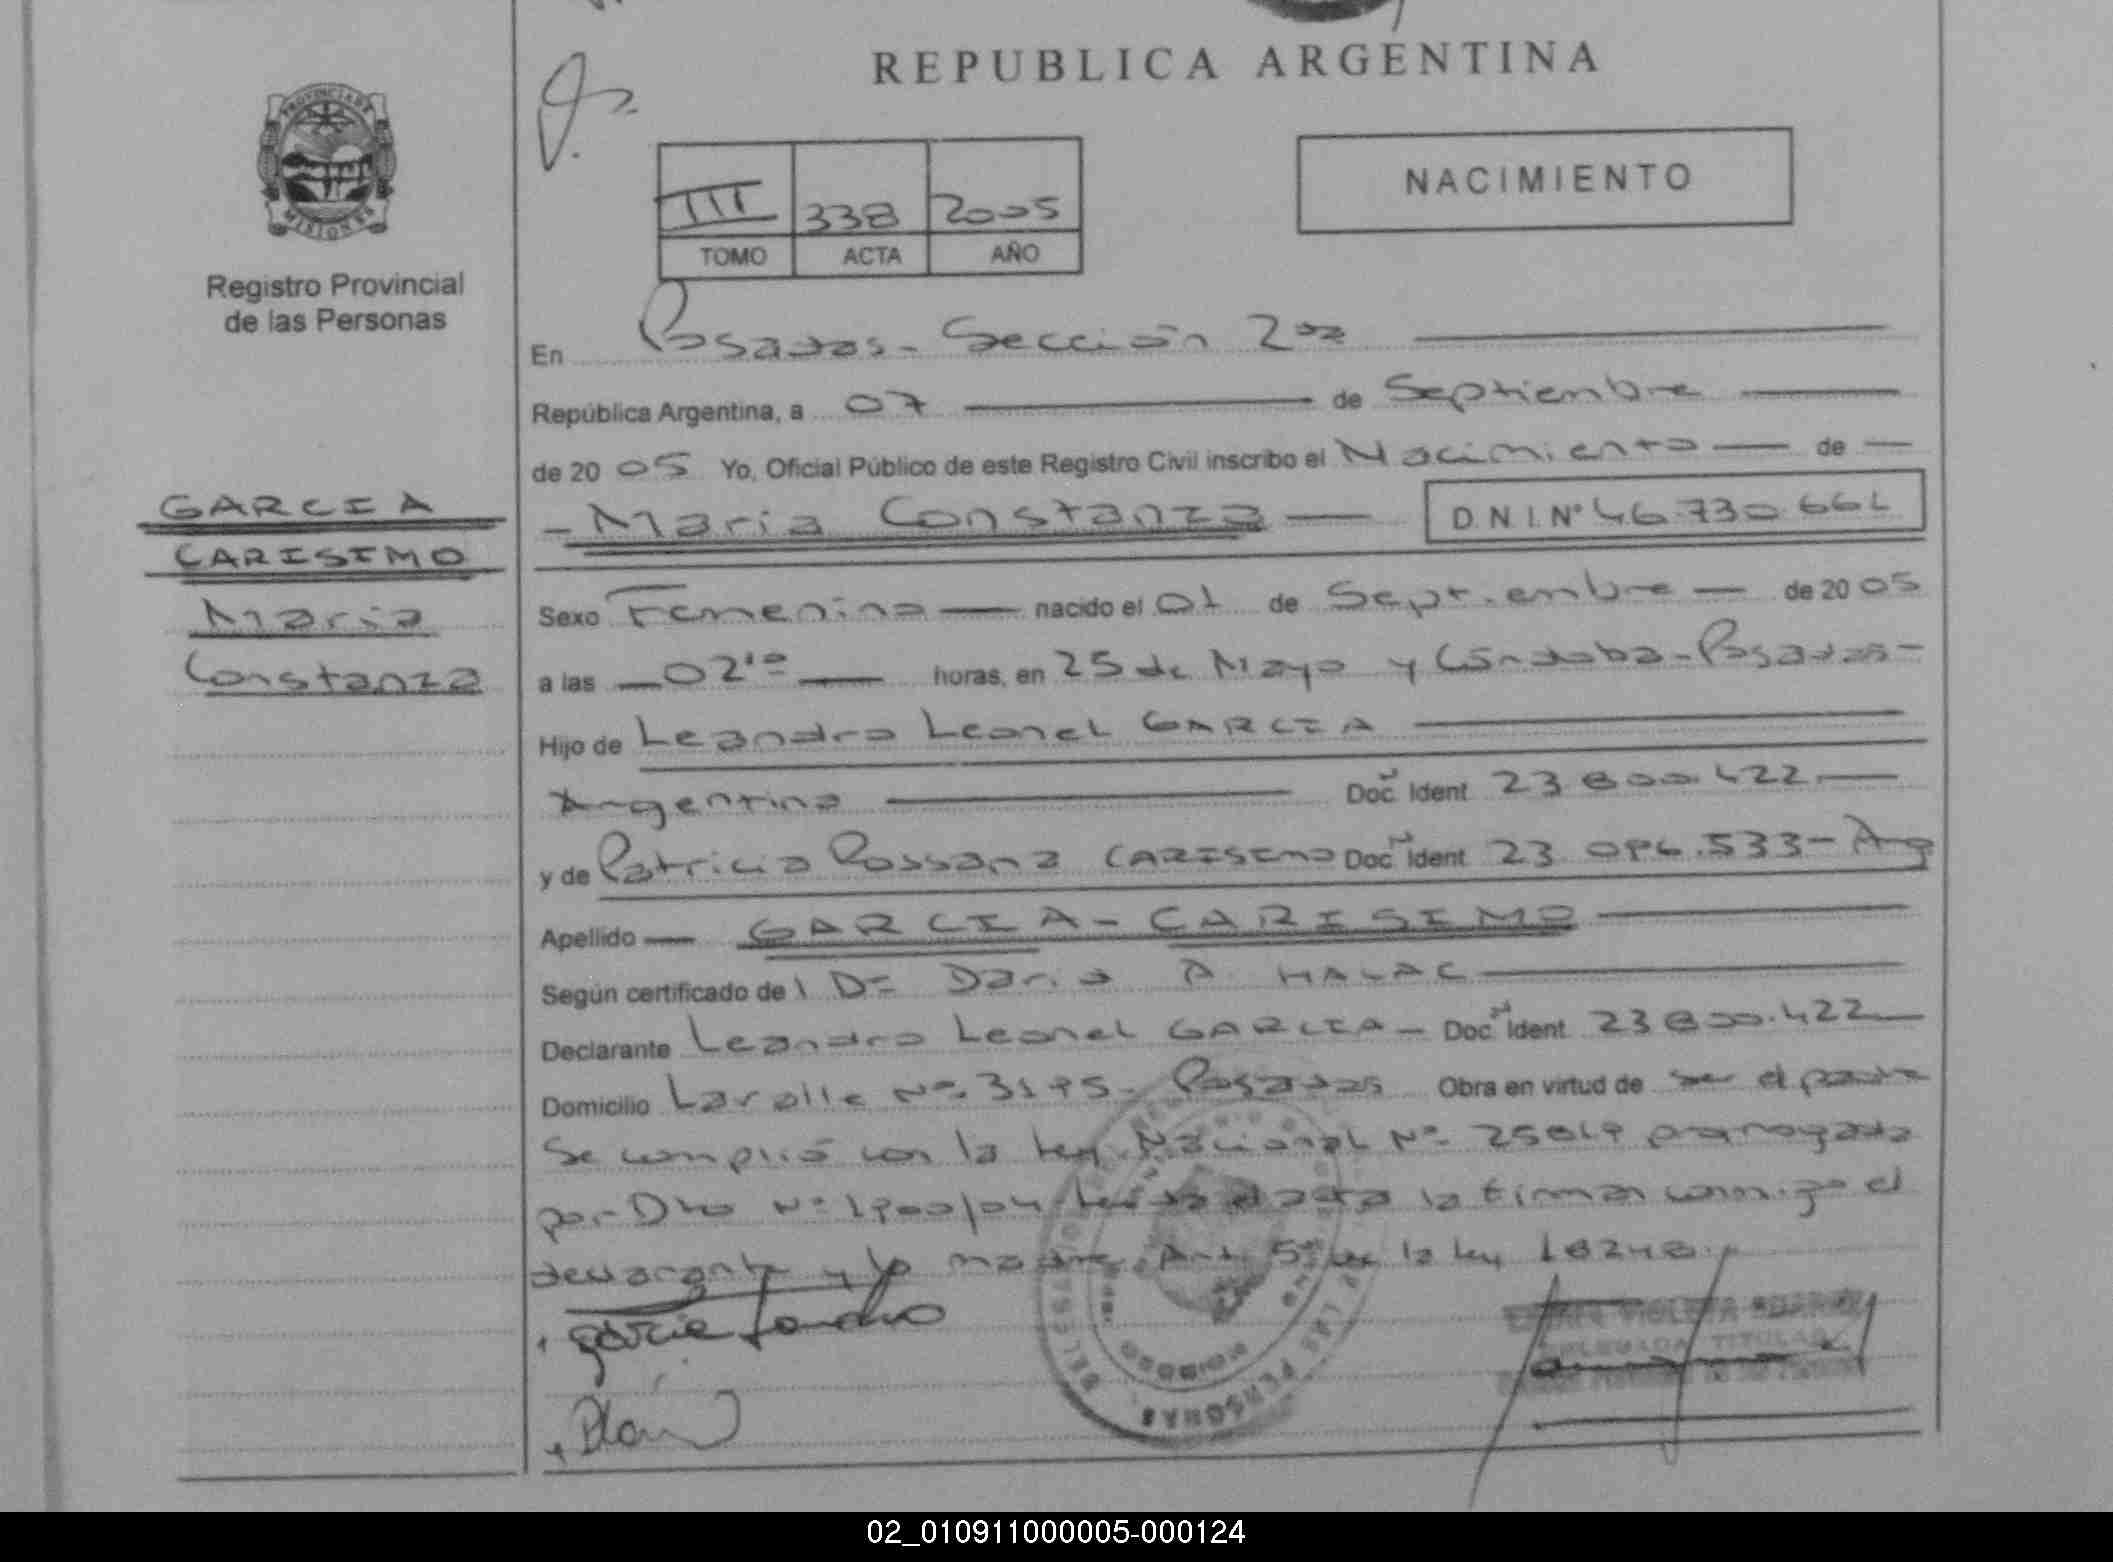 REPUBLICA ARGENTINA
PROVINCIA DE
MISIONES
Registro Provincial
de las Personas
III 338 2005
TOMO ACTA AÑO
NACIMIENTO
En Posadas - Sección 2da
República Argentina, a 07 de Septiembre
de 2005 Yo, Oficial Público de este Registro Civil inscribo el Nacimiento de
- Maria Constanza D.N.I.Nº 46.730.661
GARCIA
CARISIMO
Maria
Constanza
Sexo Femenino nacido el 01 de Septiembre de 2005
a las 02'10 horas, en 25 de Mayo y Córdoba - Posadas -
Hijo de Leandro Leonel GARCIA
Argentino Doc Ident 23.800.422
y de Patricia Rossana CARISIMO Doc Ident 23.096.533 - Arg
Apellido GARCIA - CARISIMO
Según certificado del Dr Dario A. HALAC
Declarante Leandro Leonel GARCIA - Doc Ident 23.800.422
Domicilio Lavalle Nº 3195 - Posadas Obra en virtud de ser el padre
Se cumplió con la Ley Nacional Nº 25819 prorrogada
por Dto Nº 1900/04 leida el acta la firman conmigo el
declarante y la madre Art. 5º de la Ley 18248.
DELEGADA TITULAR
LAS PERSONAS
02_010911000005-000124